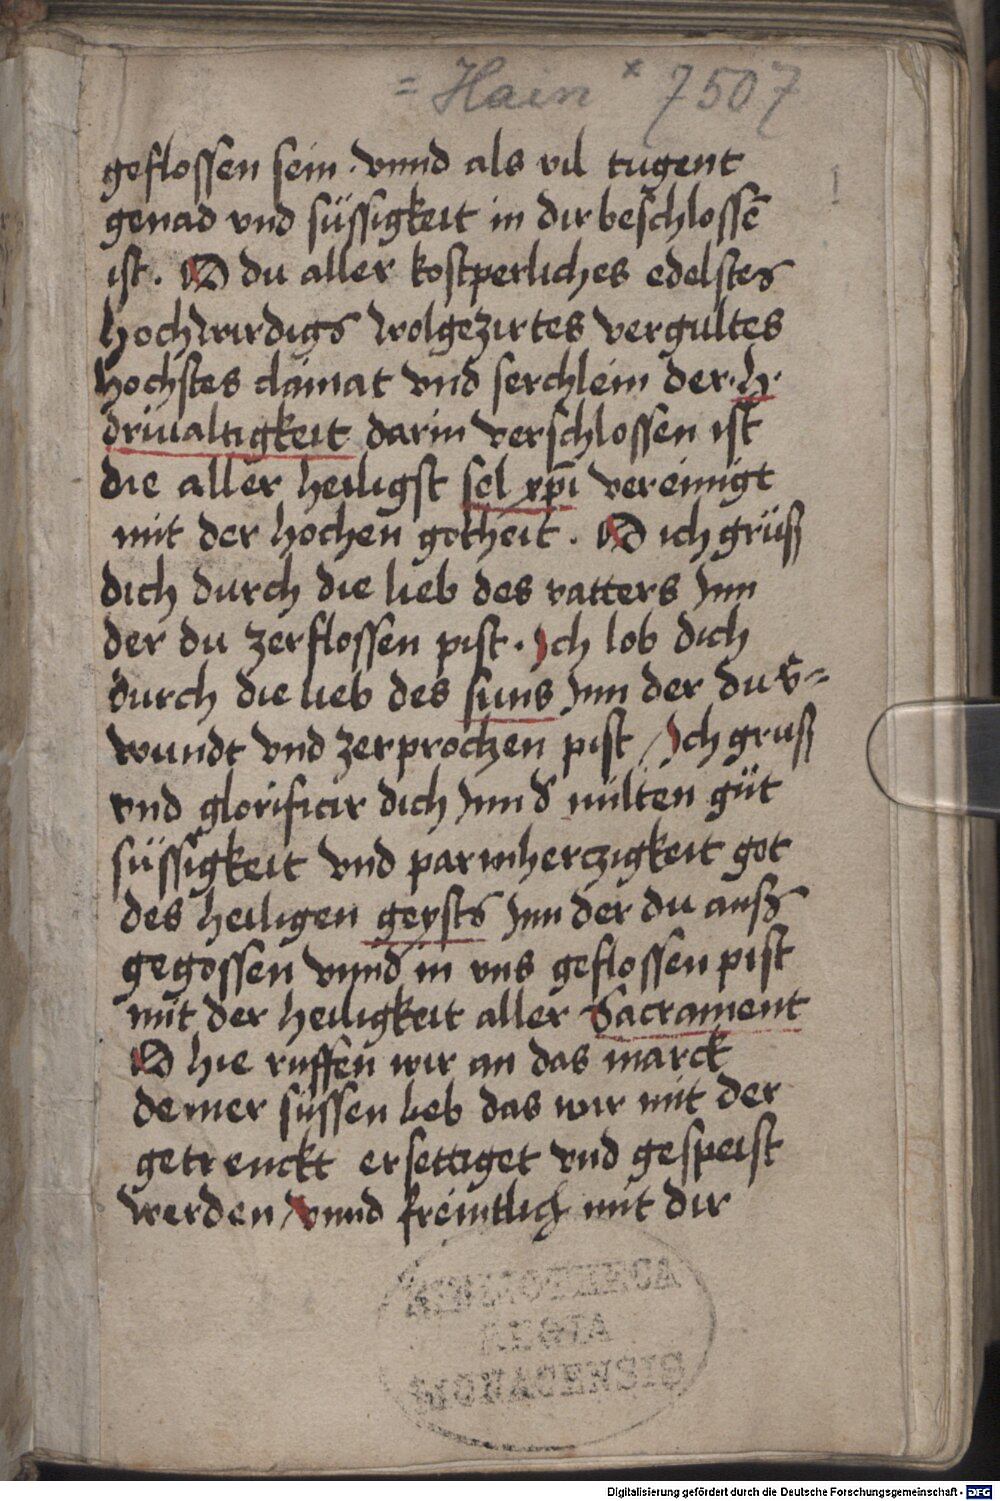 = Hain * 7507
geflossen sein · vnnd als vil tugent
genad vnd süssigkeit in dir beschlossē
ist. O du aller kostperliches edelstes
hochwirdigs wolgezirtes vergultes
hochstes clainat vnd serchlein der · h ·
driualtigkeit darin verschlossen ist
die aller heiligst sel xp̄i vereinigt
mit der hochen gotheit . O ich grüß
dich durch die lieb des vatters Jnn
der du zerflossen pist . Jch lob dich
durch die lieb des suns Jnn der du v̄=
wundt vnd zerprochen pist / Jch gruß
vnd glorificir dich Jnn d' milten güt
süssigkeit vnd parmherczigkeit got
des heiligen geysts Jnn der du auß
gegossen vnnd in vns geflossen pist
mit der heiligkeit aller Sacrament
O hie ruffen wir an das marck
deiner süssen lieb das wir mit der
getrenckt ersettiget vnd gespeist
werden / vnnd freintlich mit dir
Digitalisierung gefördert durch die Deutsche Forschungsgemeinschaft - DFG